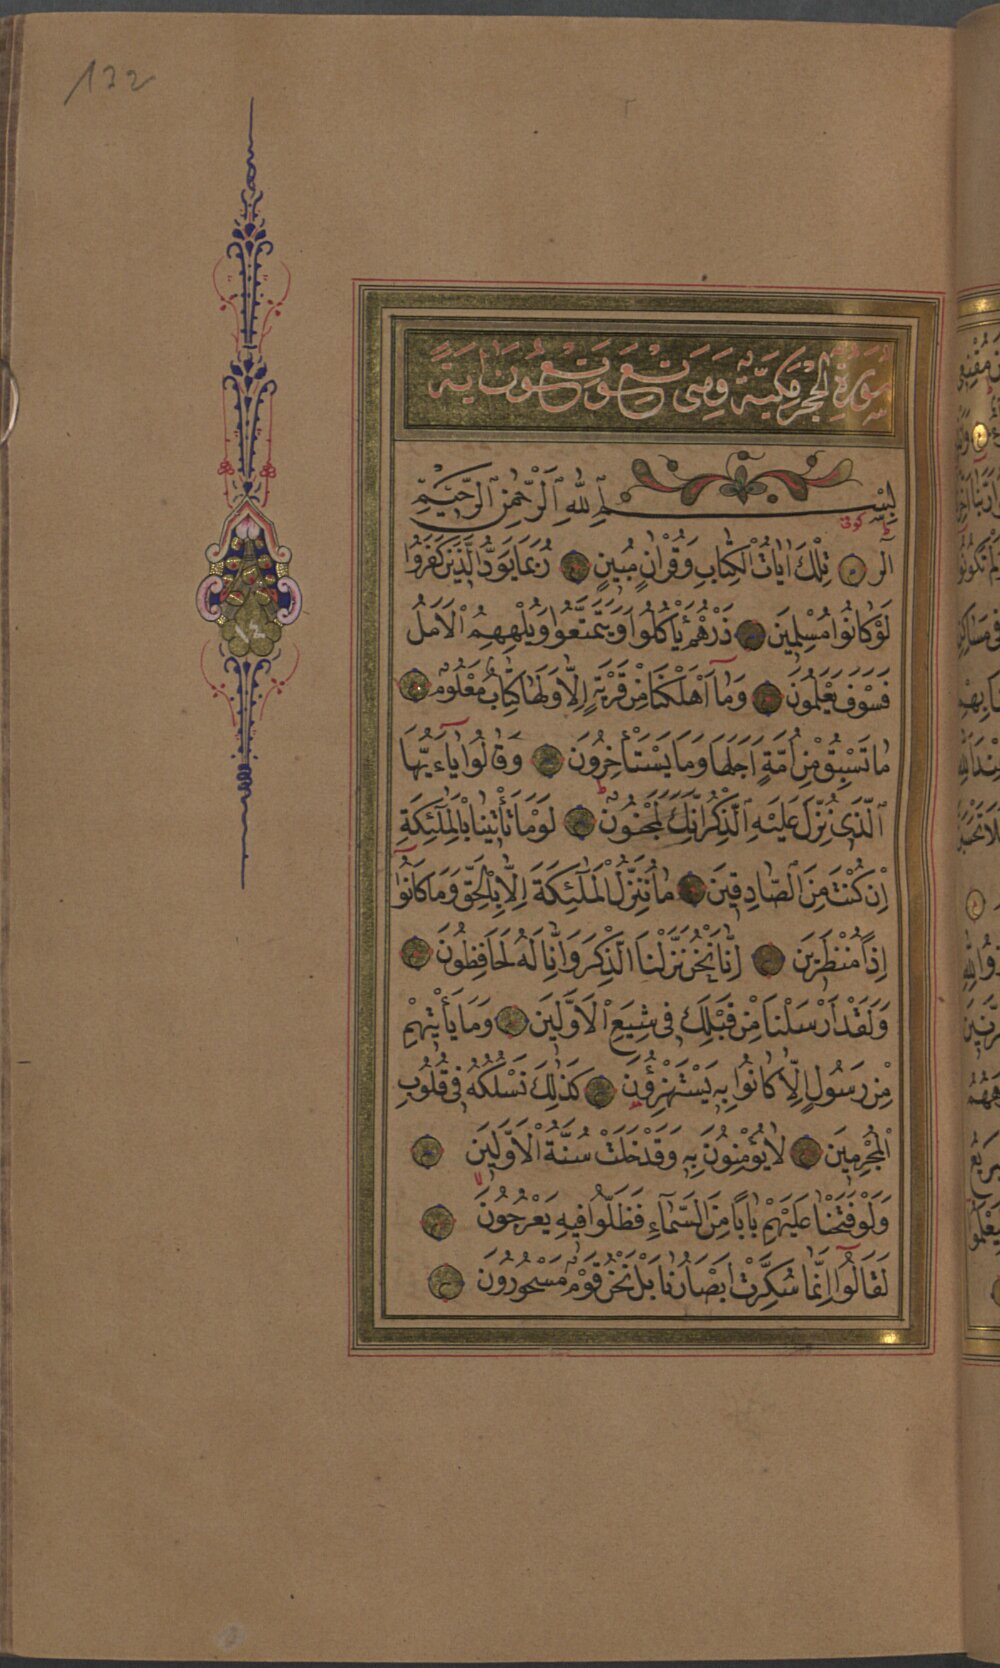 132
سُورَةُ الْحِجْرِ مَكِّيَّةٌ وَهِىَ تِسْعٌ وَتِسْعُونَ اٰيَةً
بِسْمِ اللّٰهِ الرَّحْمٰنِ الرَّحِيمِ
كوفى
الٓر تِلْكَ اٰيَاتُ الْكِتَابِ وَقُرْاٰنٍ مُبِينٍ رُبَمَا يَوَدُّ الَّذِينَ كَفَرُوا
لَوْ كَانُوا مُسْلِمِينَ ذَرْهُمْ يَأْكُلُوا وَيَتَمَتَّعُوا وَيُلْهِهِمُ الْاَمَلُ
فَسَوْفَ يَعْلَمُونَ وَمَآ اَهْلَكْنَا مِنْ قَرْيَةٍ اِلَّا وَلَهَا كِتَابٌ مَعْلُومٌ
مَا تَسْبِقُ مِنْ اُمَّةٍ اَجَلَهَا وَمَا يَسْتَأْخِرُونَ وَقَالُوا يَآ اَيُّهَا
الَّذِى نُزِّلَ عَلَيْهِ الذِّكْرُ اِنَّكَ لَمَجْنُونٌ لَوْ مَا تَأْتِينَا بِالْمَلٰٓئِكَةِ
اِنْ كُنْتَ مِنَ الصَّادِقِينَ مَا نُنَزِّلُ الْمَلٰٓئِكَةَ اِلَّا بِالْحَقِّ وَمَا كَانُوٓا
اِذًا مُنْظَرِينَ اِنَّا نَحْنُ نَزَّلْنَا الذِّكْرَ وَاِنَّا لَهُ لَحَافِظُونَ
وَلَقَدْ اَرْسَلْنَا مِنْ قَبْلِكَ فِى شِيَعِ الْاَوَّلِينَ وَمَا يَأْتِيهِمْ
مِنْ رَسُولٍ اِلَّا كَانُوا بِهِ يَسْتَهْزِؤُنَ كَذٰلِكَ نَسْلُكُهُ فِى قُلُوبِ
الْمُجْرِمِينَ لَا يُؤْمِنُونَ بِهِ وَقَدْ خَلَتْ سُنَّةُ الْاَوَّلِينَ
وَلَوْ فَتَحْنَا عَلَيْهِمْ بَابًا مِنَ السَّمَآءِ فَظَلُّوا فِيهِ يَعْرُجُونَ
لَقَالُوٓا اِنَّمَا سُكِّرَتْ اَبْصَارُنَا بَلْ نَحْنُ قَوْمٌ مَسْحُورُونَ
١٤